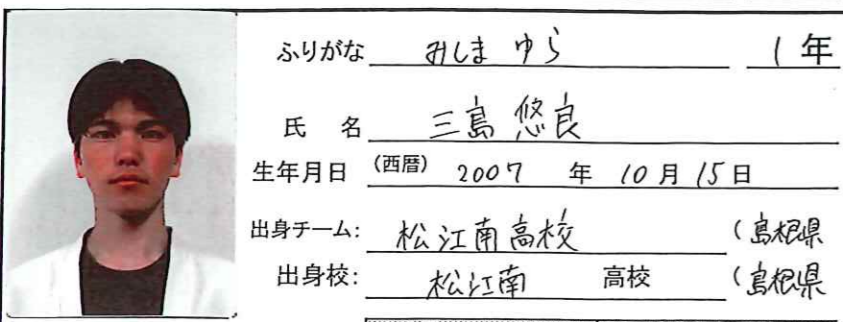 ふりがな みしま ゆら 1年
氏 名 三島 悠良
生年月日 (西暦) 2007 年 10月 15日
出身チーム: 松江南高校 (島根県
出身校: 松江南 高校 (島根県